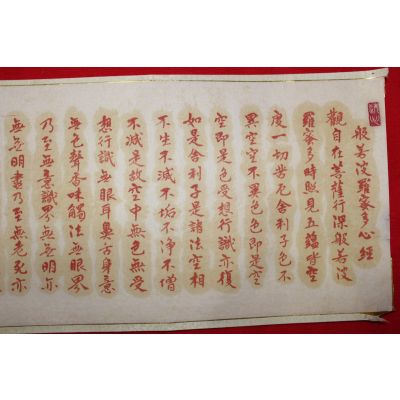 般若波羅蜜多心經
觀自在菩薩行深般若波
羅蜜多時照見五蘊皆空
度一切苦厄舍利子色不
異空空不異色色即是空
空即是色受想行識亦復
如是舍利子是諸法空相
不生不滅不垢不淨不增
不減是故空中無色無受
想行識無眼耳鼻舌身意
無色聲香味觸法無眼界
乃至無意識界無無明亦
無無明盡乃至無老死亦